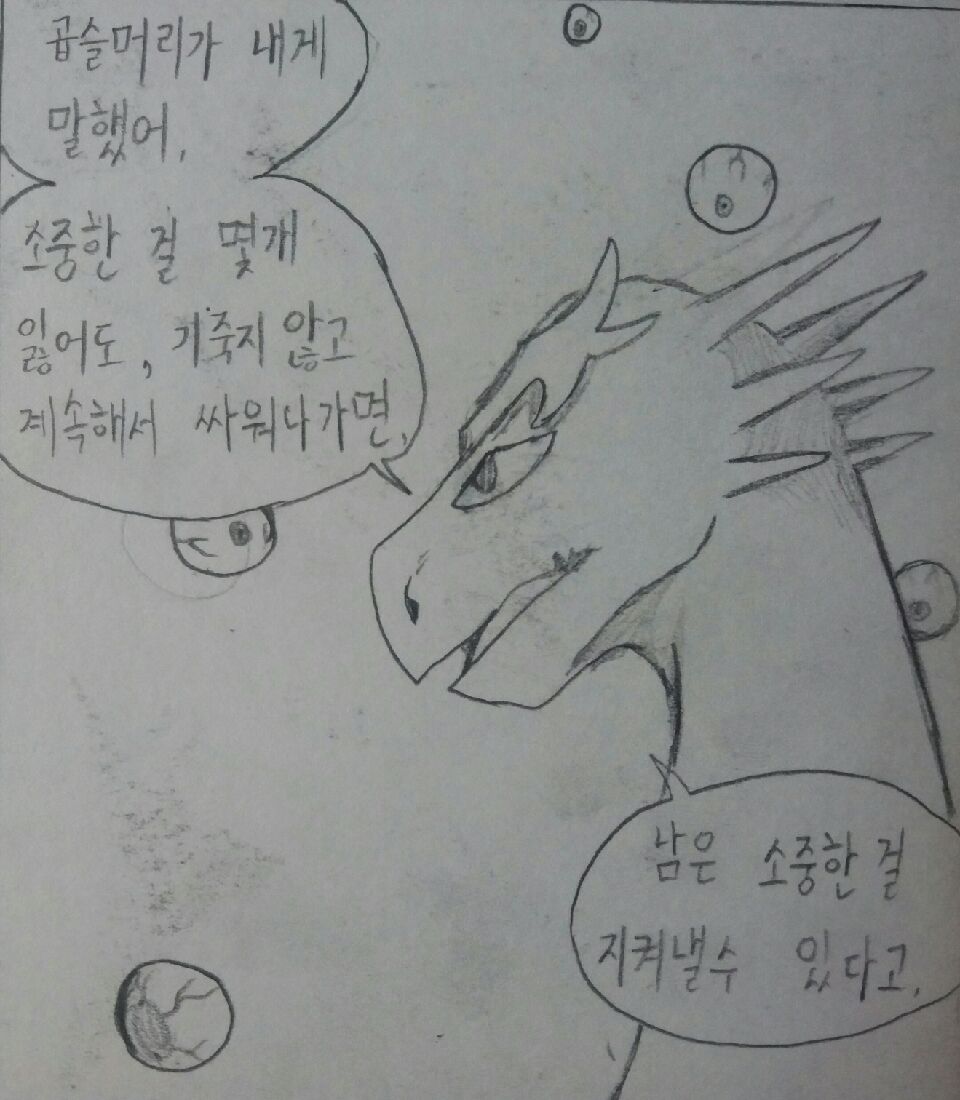 곱슬머리가 내게
말했어,
소중한 걸 몇개
잃어도, 기죽지 않고
계속해서 싸워나가면,
남은 소중한 걸
지켜낼수 있다고.